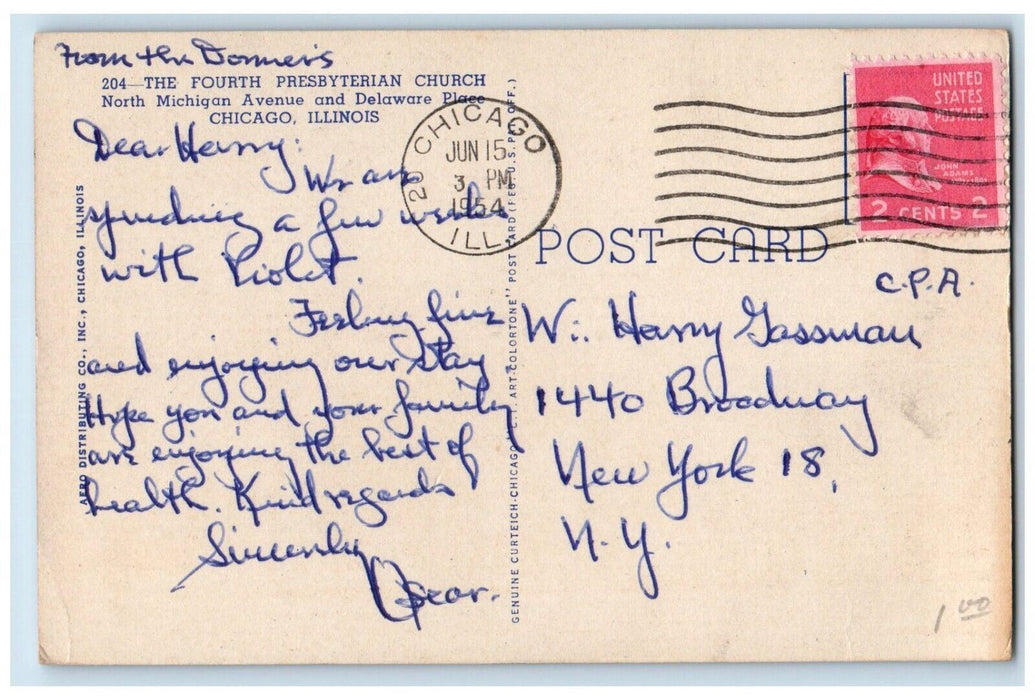 From the Donner's
204—THE FOURTH PRESBYTERIAN CHURCH
North Michigan Avenue and Delaware Place
CHICAGO, ILLINOIS
Dear Harry:
We are
spending a few weeks
with Violet.
Feeling fine
and enjoying our stay
Hope you and your family
are enjoying the best of
health. Kind regards
Sincerely
Oscar.
AERO DISTRIBUTING CO., INC., CHICAGO, ILLINOIS
GENUINE CURTEICH-CHICAGO "C.T. ART-COLORTONE" POST CARD (REG. U.S. PAT. OFF.)
CHICAGO
20
JUN 15
3 PM
1954
ILL.
UNITED
STATES
POSTAGE
JOHN
ADAMS
2 CENTS 2
POST CARD
C.P.A.
Harry Gassman
1440 Broadway
New York 18,
N.Y.
1 00